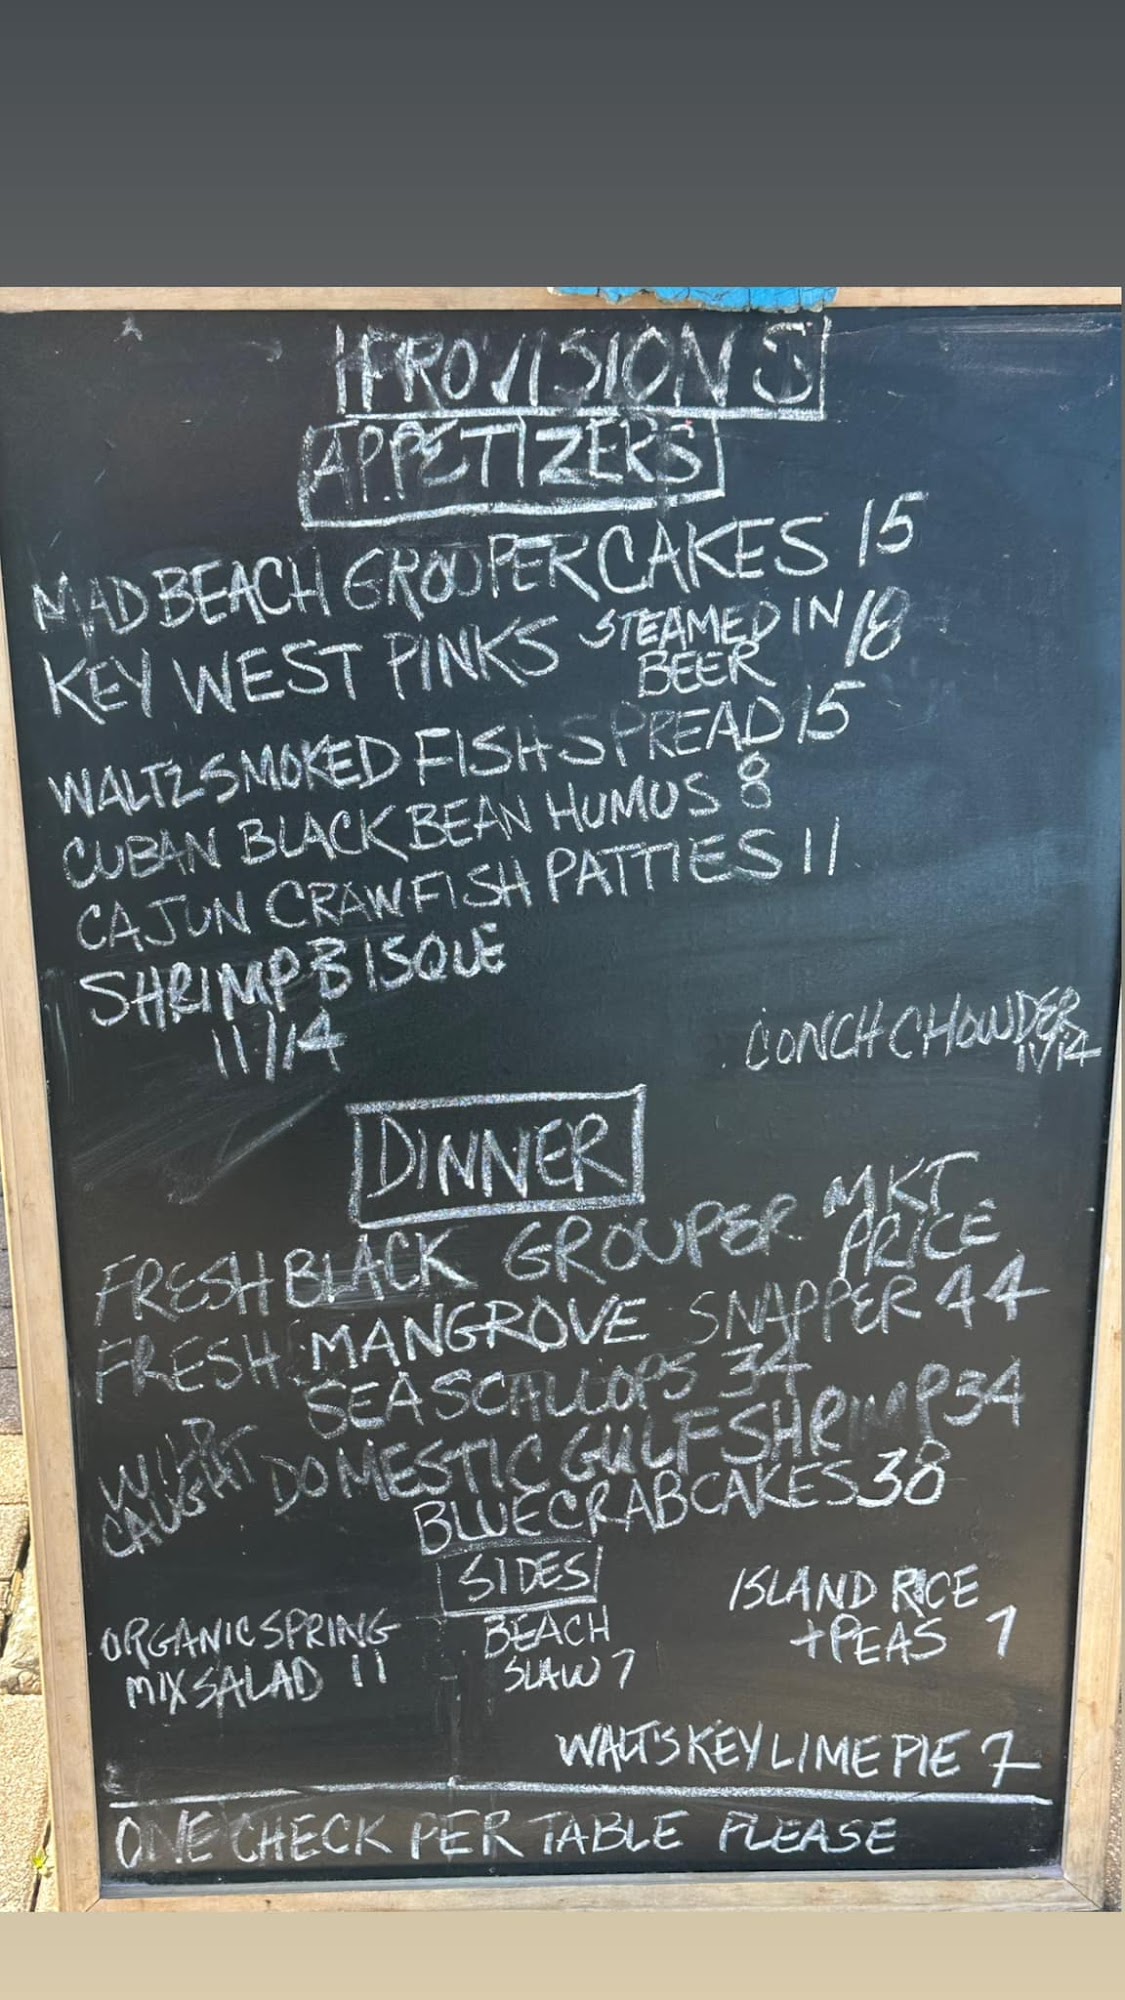 PROVISIONS
APPETIZERS
MAD BEACH GROUPER CAKES 15
KEY WEST PINKS STEAMED IN BEER 18
WALTZ SMOKED FISH SPREAD 15
CUBAN BLACK BEAN HUMUS 8
CAJUN CRAWFISH PATTIES 11
SHRIMP BISQUE
11/14
CONCH CHOWDER
11/14
DINNER
FRESH BLACK GROUPER MKT PRICE
FRESH MANGROVE SNAPPER 44
SEA SCALLOPS 34
WILD CAUGHT DOMESTIC GULF SHRIMP 34
BLUE CRAB CAKES 38
SIDES
ORGANIC SPRING
MIX SALAD 11
BEACH
SLAW 7
ISLAND RICE
+ PEAS 7
WALT'S KEY LIME PIE 7
ONE CHECK PER TABLE PLEASE